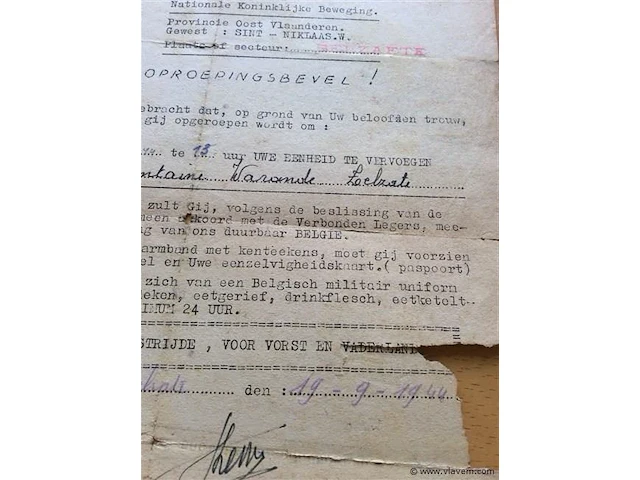 Nationale Koninklijke Beweging.
Provincie Oost Vlaanderen.
Gewest : SINT - NIKLAAS.W.
Plaats of secteur:.....
OPROEPINGSBEVEL !
ebracht dat, op grond van Uw beloofden trouw,
gij opgeroepen wordt om :
te 18 uur UWE EENHEID TE VERVOEGEN
ntaine Varande Zelzate
zult Gij, volgens de beslissing van de
meen akkoord met de Verbonden Legers, mee-
g van ons duurbaar BELGIE.
armband met kenteekens, moet gij voorzien
el en Uwe eenzelvigheidskaart.( paspoort)
zich van een Belgisch militair uniform
eken, eetgerief, drinkflesch, eetketelt-
IMUM 24 UUR.
STRIJDE , VOOR VORST EN VADERLAND
den : 19 - 9 - 1944
© www.vlavem.com